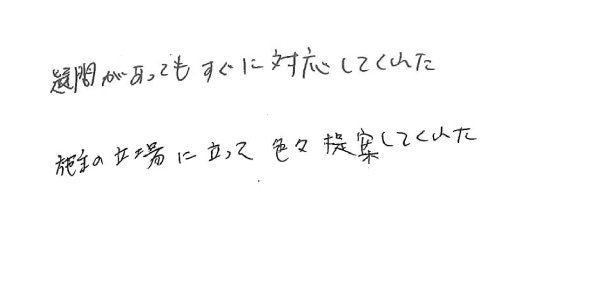 疑問があってもすぐに対応してくれた
施主の立場に立って色々提案してくれた